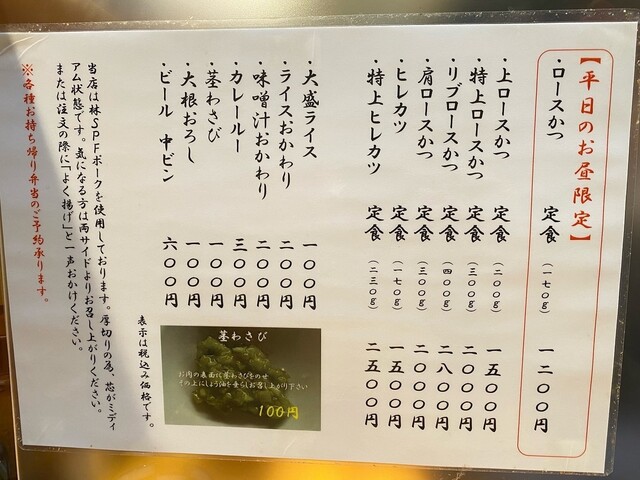 【平日のお昼限定】
・ロースかつ 定食 (一七〇g) 一二〇〇円
・上ロースかつ 定食 (二〇〇g) 一五〇〇円
・特上ロースかつ 定食 (三〇〇g) 二〇〇〇円
・リブロースかつ 定食 (四〇〇g) 二八〇〇円
・肩ロースかつ 定食 (三〇〇g) 二〇〇〇円
・ヒレカツ 定食 (一七〇g) 一五〇〇円
・特上ヒレカツ 定食 (二三〇g) 二五〇〇円
・大盛ライス 一〇〇円
・ライスおかわり 二〇〇円
・味噌汁おかわり 二〇〇円
・カレールー 三〇〇円
・茎わさび 一〇〇円
・大根おろし 一〇〇円
・ビール 中ビン 六〇〇円
茎わさび
お肉の表面に茎わさびをのせ
その上にしょう油を垂らしお召し上がり下さい
100円
表示は税込み価格です。
当店は林SPFポークを使用しております。厚切りの為、芯がミディ
アム状態です。気になる方は両サイドよりお召し上がりください。
または注文の際に「よく揚げ」と一声おかけください。
※各種お持ち帰り弁当のご予約承ります。